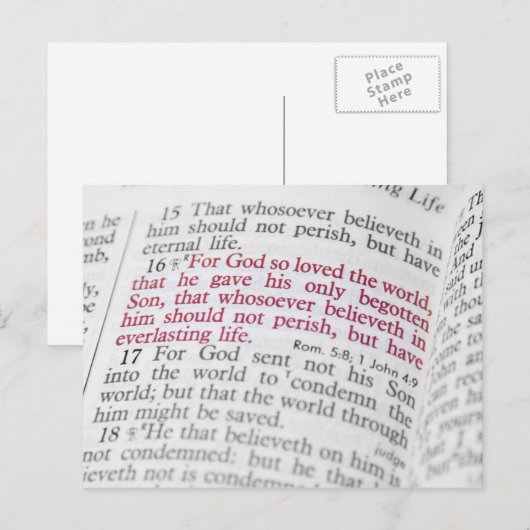 Place
Stamp
Here
ng Life
15 That whosoever believeth in
him should not perish, but have
eternal life.
16 For God so loved the world,
that he gave his only begotten
Son, that whosoever believeth in
him should not perish, but have
everlasting life.
Rom. 5:8; 1 John 4:9
17 For God sent not his Son
into the world to condemn the
world; but that the world through
him might be saved.
judge
18 He that believeth on him is
not condemned: but he that
ieveth not is condemned